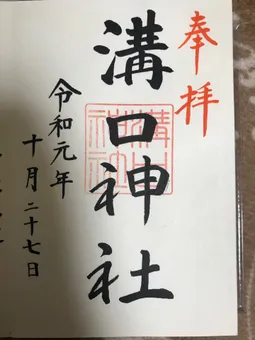 奉拝
溝口神社
令和元年
十月二十七日